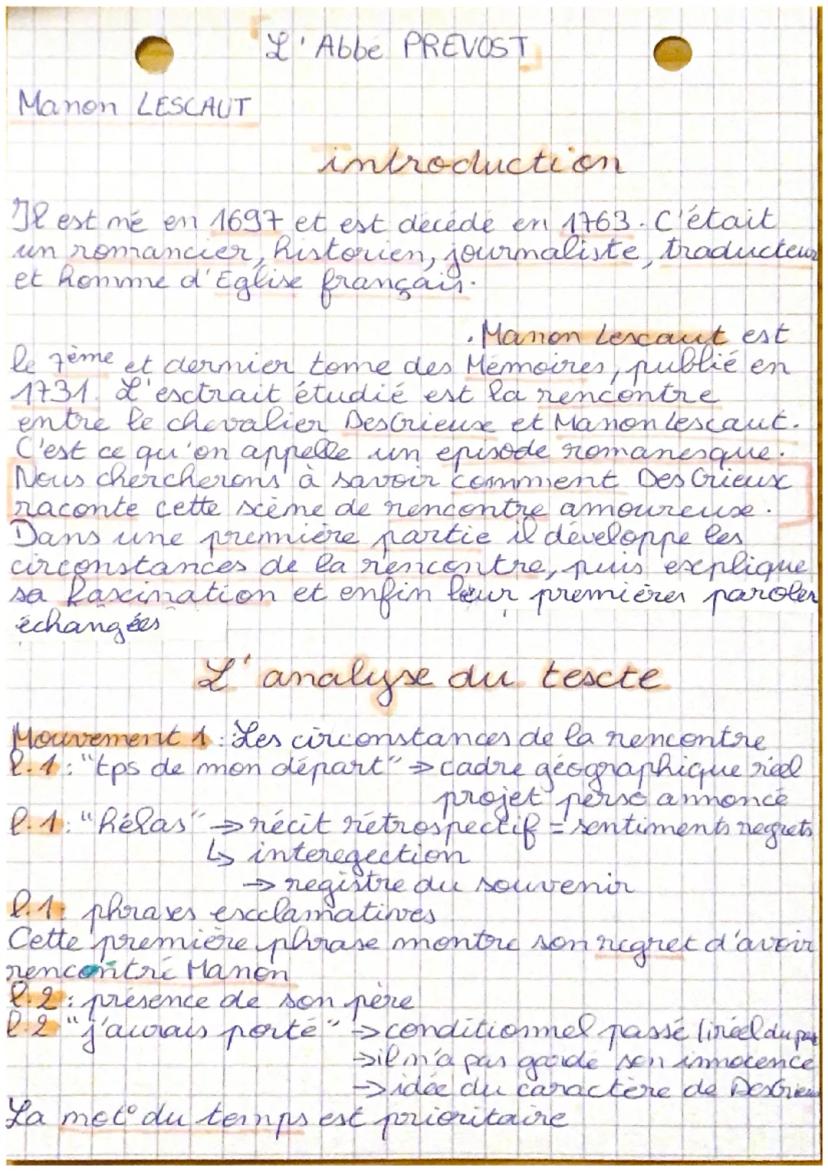 L'Abbé PREVOST
Manon LESCAUT
introduction
Il est né en 1697 et est décédé en 1763. C'était
un romancier, historien, journaliste, traducteur
et homme d'Eglise français.
. Manon Lescaut est
le 7ème et dernier tome des Mémoires, publié en
1731. L'esctrait étudié est la rencontre
entre le chevalier DesGrieux et Manon Lescaut.
C'est ce qu'on appelle un épisode romanesque.
Nous chercherons à savoir comment Des Grieux
raconte cette scème de rencontre amoureuse.
Dans une première partie il développe les
circonstances de la rencontre, puis explique
sa fascination et enfin leur premières paroles
échangées
L'analyse du texte
Mouvement 1 : Les circonstances de la rencontre
l.1 : "tps de mon départ" → cadre géographique réel
projet perso annoncé
l.1 : "hélas" → récit rétrospectif = sentiments regrets
↳ interegection
→ registre du souvenir
l.1 : phrases exclamatives
Cette première phrase montre son regret d'avoir
rencontré Manon
l.2 : présence de son père
l.2 "j'aurais porté" → conditionnel passé (iréel du
→ il n'a pas gardé son innocence
→ idée du caractère de DesGrieu
La mot° du temps est prioritaire